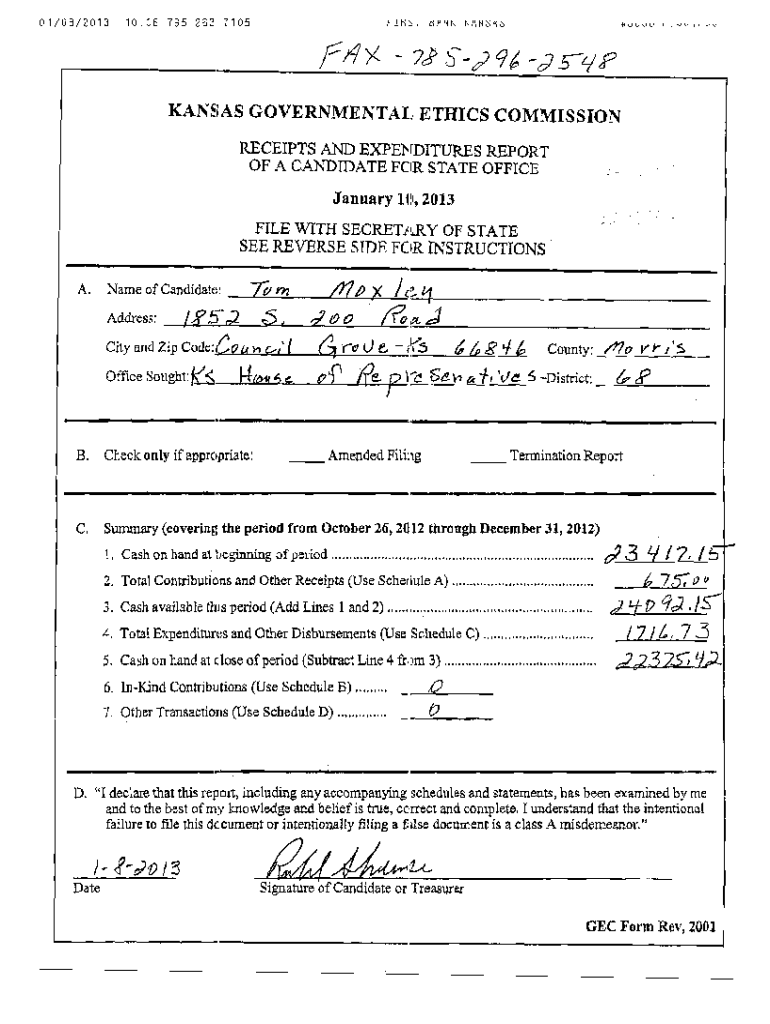 01/08/2013 10:08 785 263 7105 FIRST BANK KANSAS
FAX - 785-296-2548
KANSAS GOVERNMENTAL ETHICS COMMISSION
RECEIPTS AND EXPENDITURES REPORT
OF A CANDIDATE FOR STATE OFFICE
January 10, 2013
FILE WITH SECRETARY OF STATE
SEE REVERSE SIDE FOR INSTRUCTIONS
A. Name of Candidate: Tom Moxley
Address: 1852 S. 200 Road
City and Zip Code: Council Grove - Ks 66846 County: Morris
Office Sought: KS House of Represenatives - District: 68
B. Check only if appropriate: ____ Amended Filing ____ Termination Report
C. Summary (covering the period from October 26, 2012 through December 31, 2012)
1. Cash on hand at beginning of period ........ 23417.15
2. Total Contributions and Other Receipts (Use Schedule A) ........ 675.00
3. Cash available this period (Add Lines 1 and 2) ........ 24092.15
4. Total Expenditures and Other Disbursements (Use Schedule C) ........ 1716.73
5. Cash on hand at close of period (Subtract Line 4 from 3) ........ 22375.42
6. In-Kind Contributions (Use Schedule B) ......... 0
7. Other Transactions (Use Schedule D) ............. 0
D. "I declare that this report, including any accompanying schedules and statements, has been examined by me
and to the best of my knowledge and belief is true, correct and complete. I understand that the intentional
failure to file this document or intentionally filing a false document is a class A misdemeanor."
1-8-2013
Date Signature of Candidate or Treasurer
GEC Form Rev, 2001